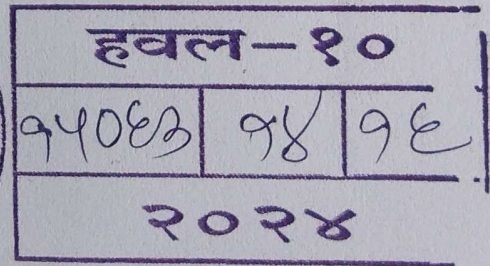 हवल-१०
१५०६३ १४ १६
२०२४